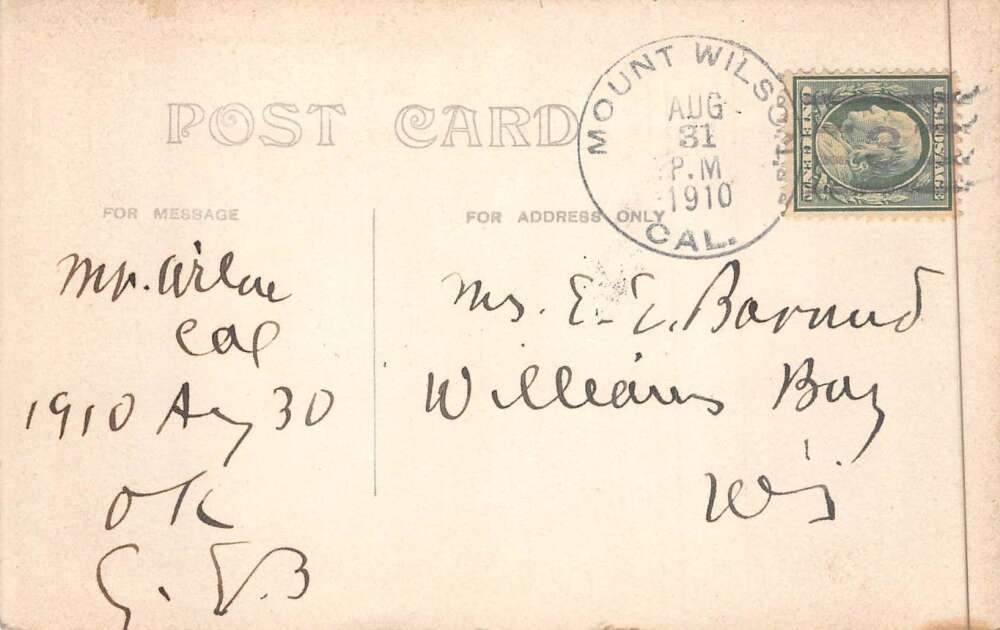 POST CARD
MOUNT WILSO
AUG
31
P.M
1910
CAL.
U.S. POSTAGE
ONE CENT
FOR MESSAGE
FOR ADDRESS ONLY
Mt. Wilson
Cal
1910 Aug 30
OK
E. E. B
Mrs. E. E. Barnard
Williams Bay
Wis